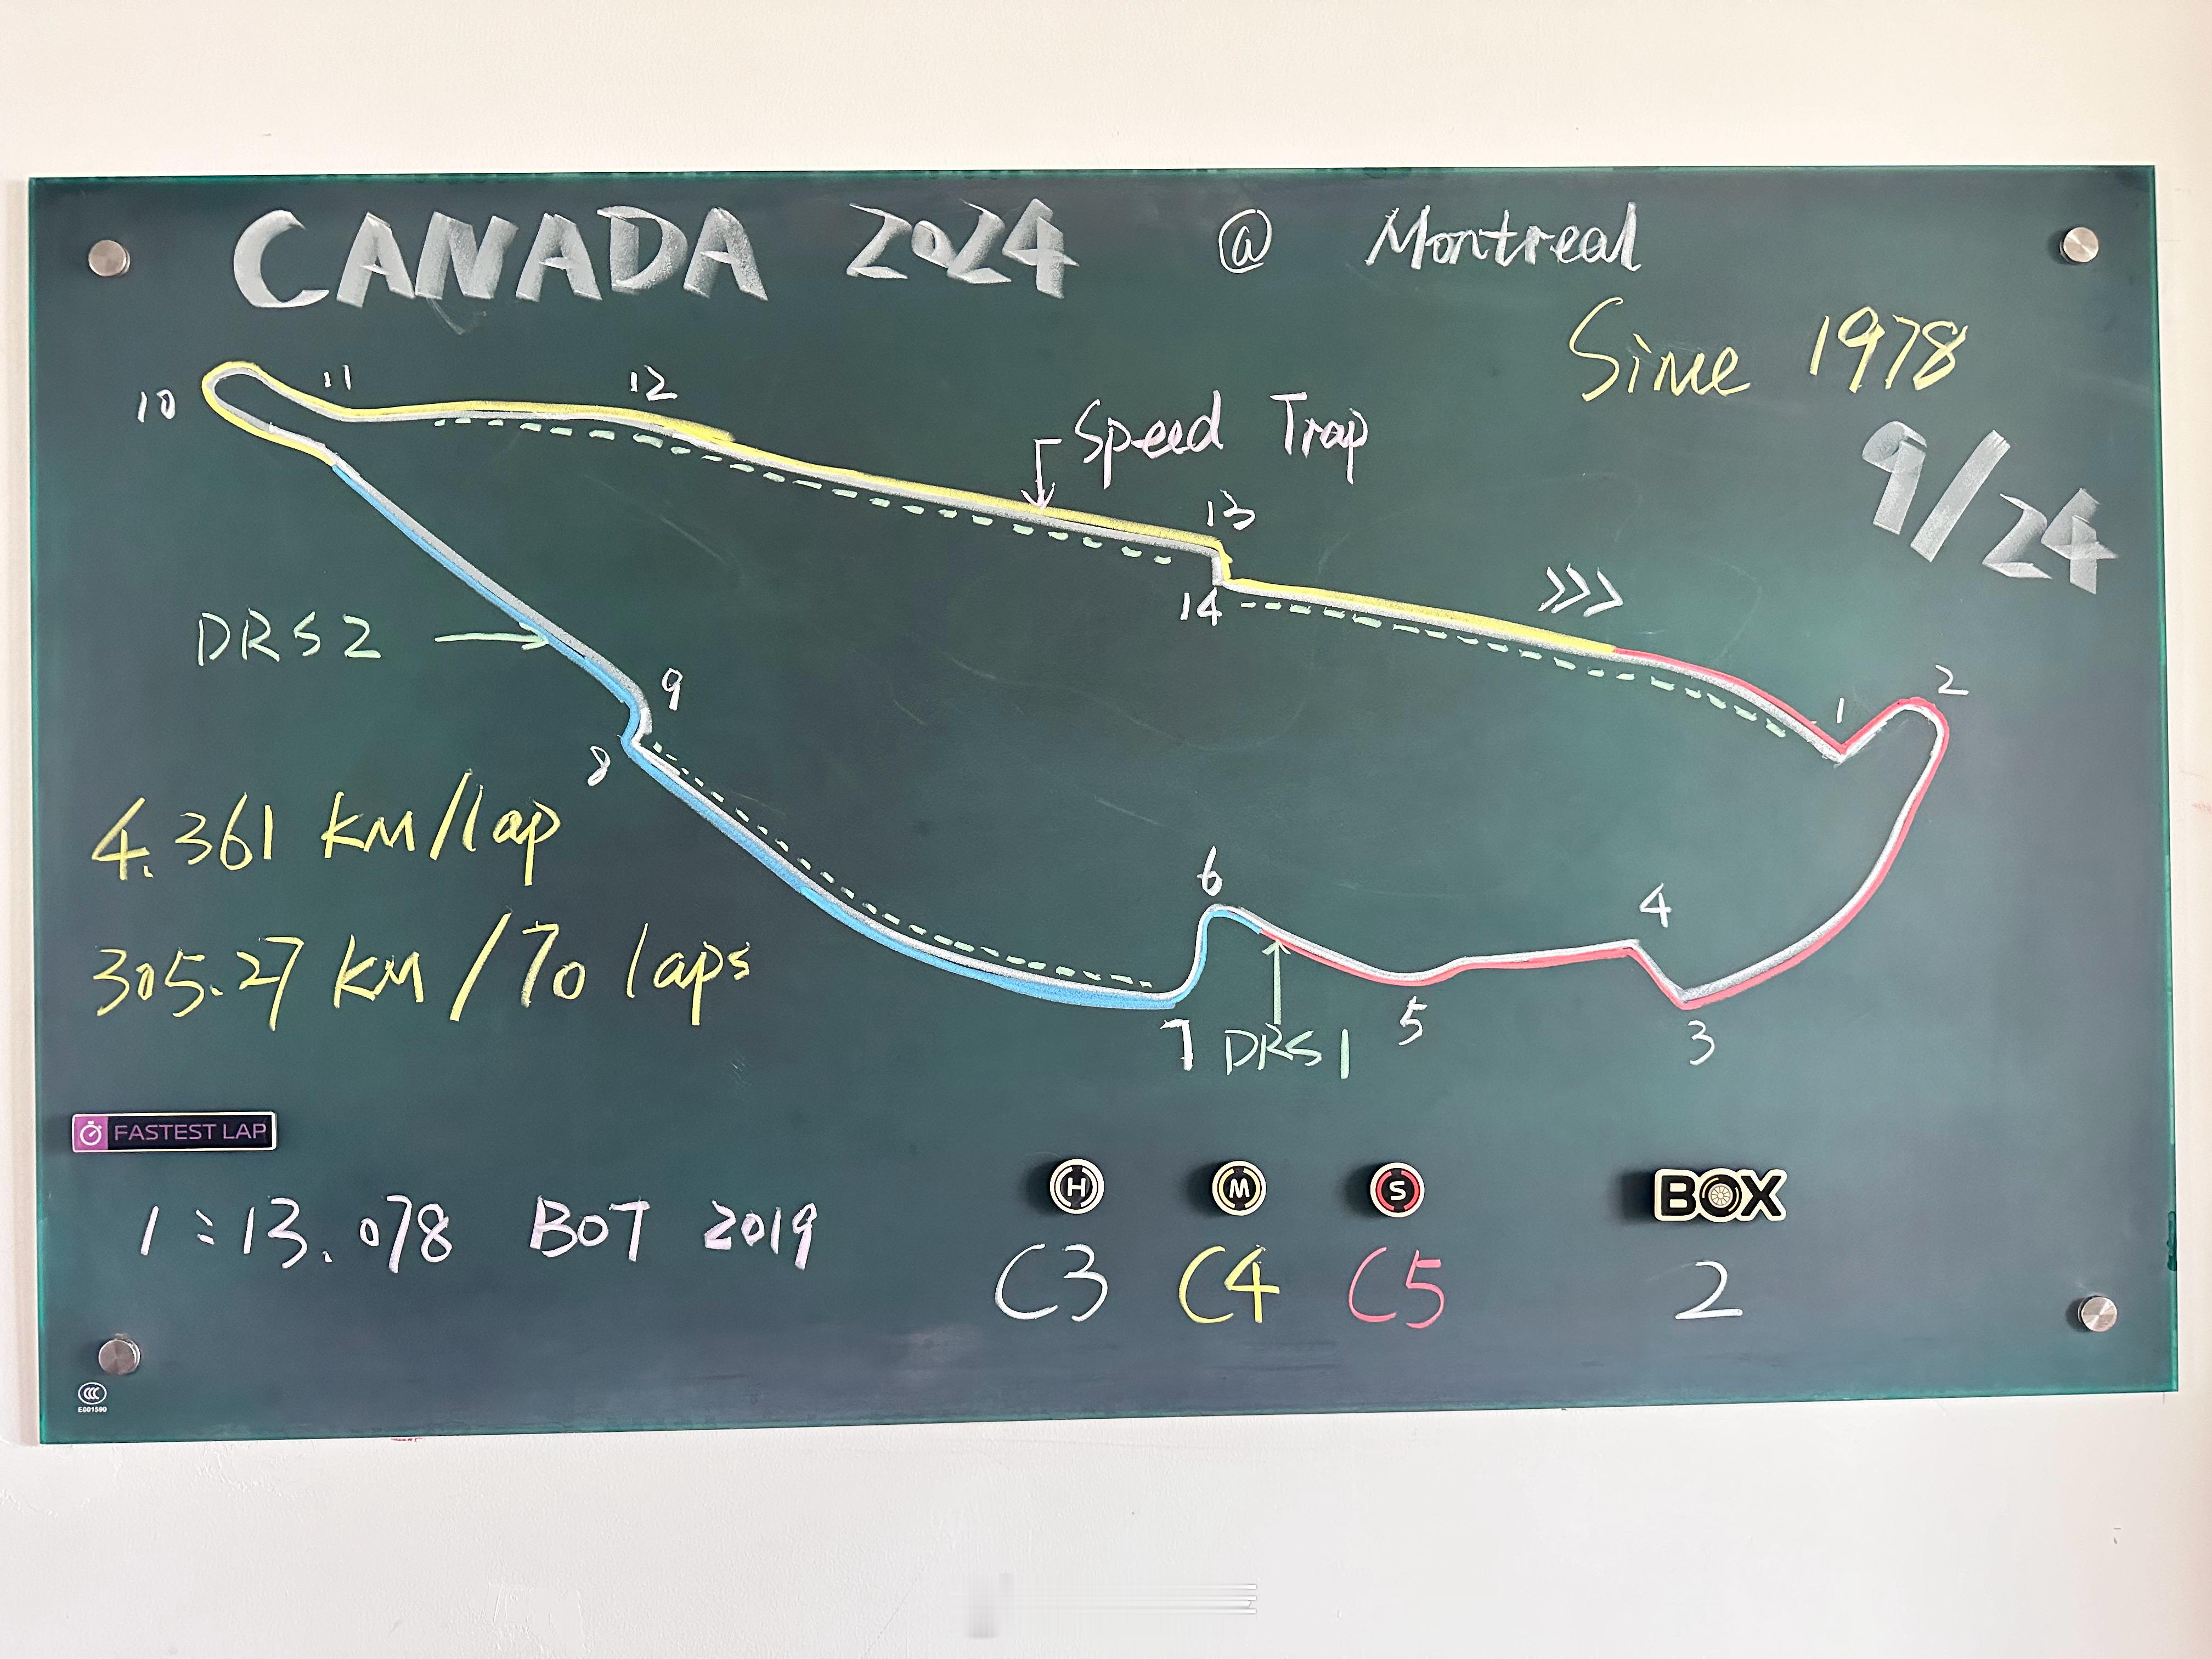 CANADA 2024 @ Montreal
Since 1978
9/24
10
11
12
Speed Trap
13
14
>>>
1
2
DRS2
9
8
4.361 KM/lap
6
4
305.27 KM/70 laps
7
DRS1
5
3
FASTEST LAP
1:13.078 BOT 2019
H M S BOX
C3 C4 C5 2
CCC
E001590